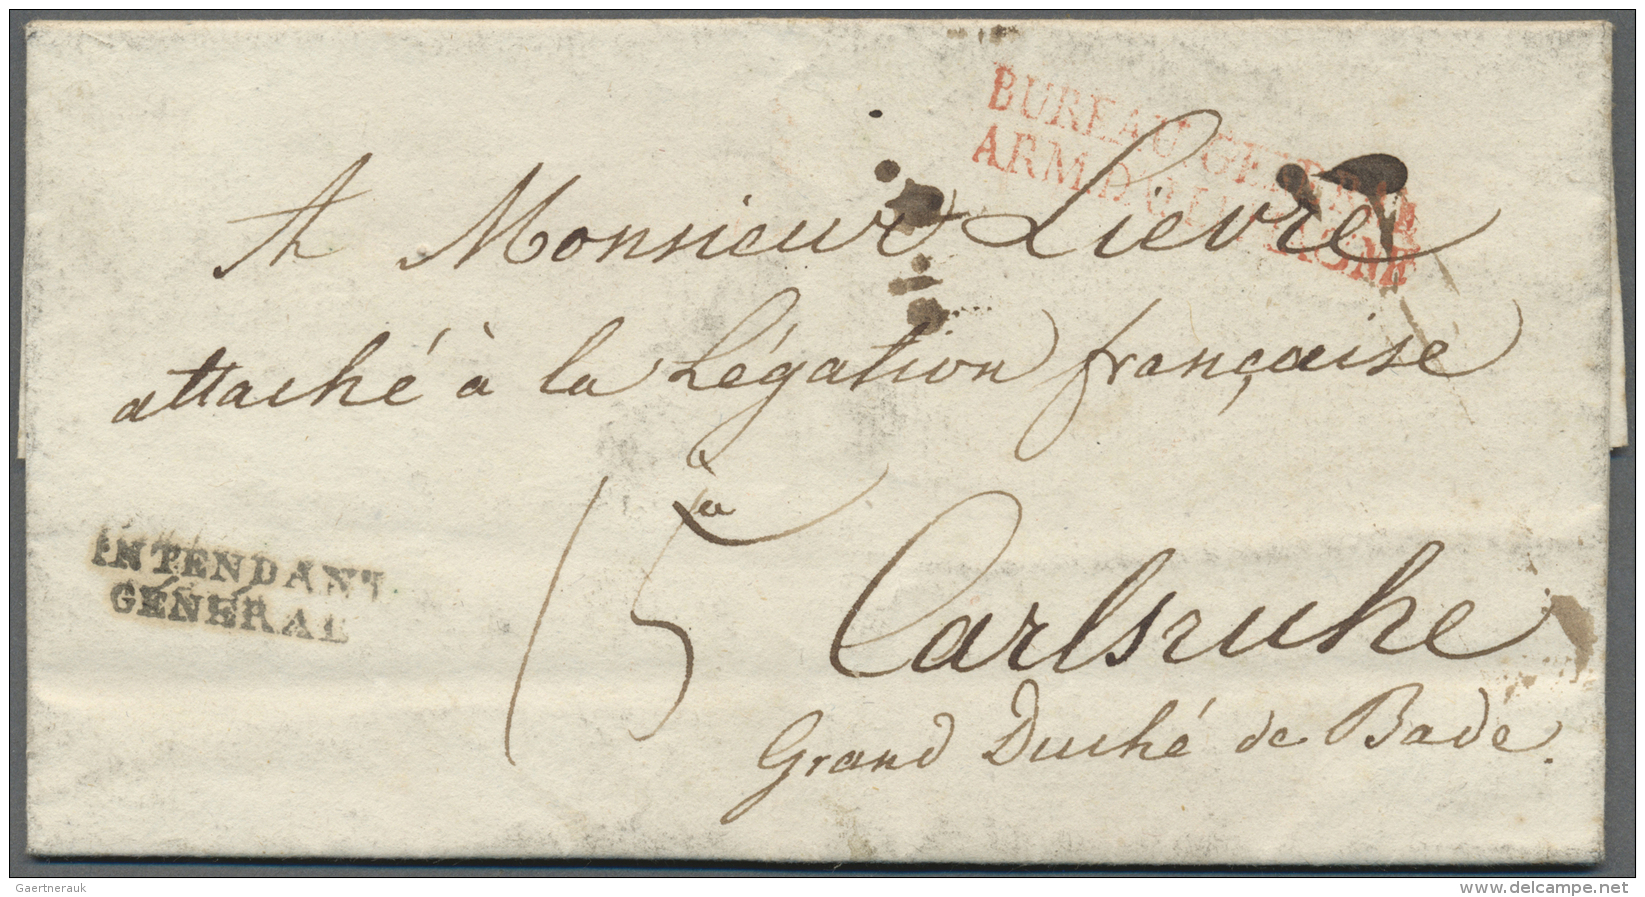 BUREAU GENERAL
ARM D'ALLEMAGNE
A Monsieur Lievre
attaché à la Légation française
à
15
Carlsruhe
Grand Duché de Bade.
INTENDANT
GÉNÉRAL
Gaertnerauk
www.delcampe.net